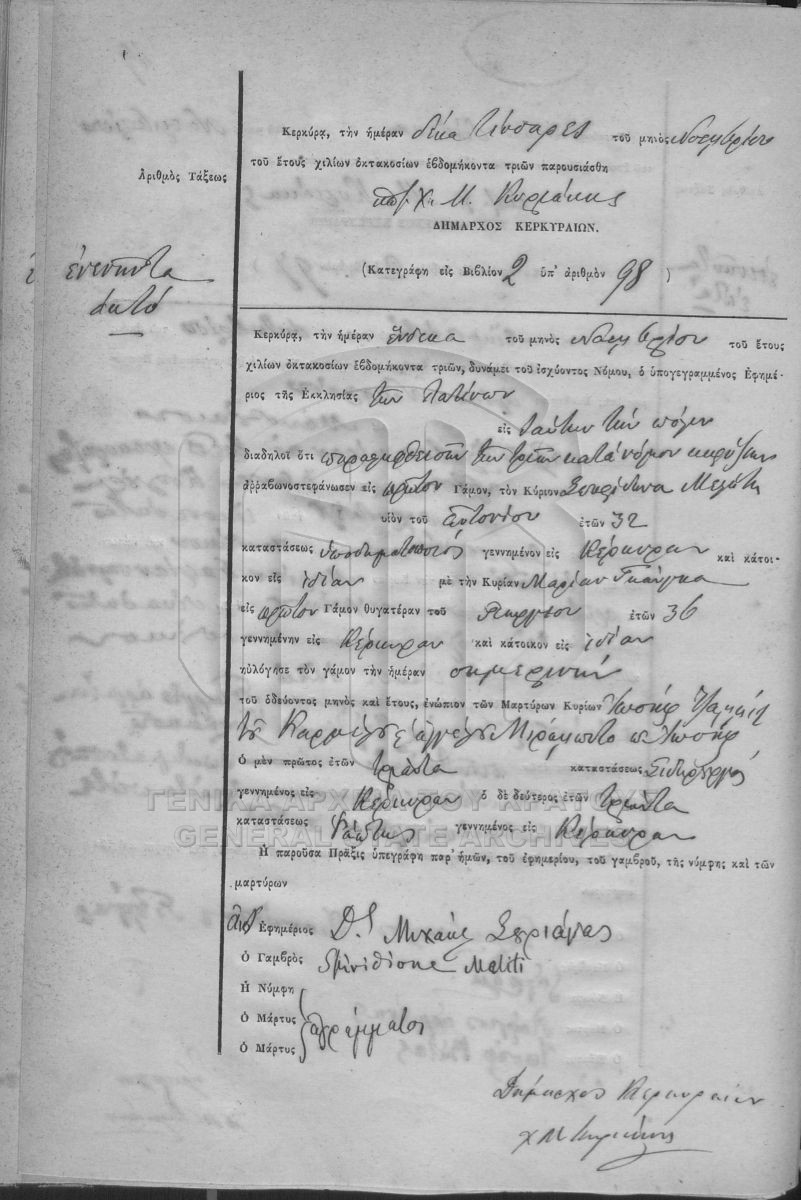 Κερκύρᾳ, τὴν ἡμέραν δέκα τέσσαρες τοῦ μηνὸς Νοεμβρίου
τοῦ ἔτους χιλίων ὀκτακοσίων ἑβδομήκοντα τριῶν παρουσιάσθη
Χ. Μ. Κυριάκης
ΔΗΜΑΡΧΟΣ ΚΕΡΚΥΡΑΙΩΝ.
Ἀριθμὸς Τάξεως
ἐνενῆντα
ὀκτό
(Κατεγράφη εἰς Βιβλίον 2 ὑπ' ἀριθμὸν 98 )
Κερκύρᾳ, τὴν ἡμέραν ἕνδεκα τοῦ μηνὸς Νοεμβρίου τοῦ ἔτους
χιλίων ὀκτακοσίων ἑβδομήκοντα τριῶν, δυνάμει τοῦ ἰσχύοντος Νόμου, ὁ ὑπογεγραμμένος Ἐφημέ-
ριος τῆς Ἐκκλησίας τῶν Λατίνων
εἰς ταύτην τὴν πόλιν
διαδηλοῖ ὅτι τῶν τριῶν κατὰ νόμον κηρύξεων
ἀρραβωνοστεφάνωσεν εἰς πρῶτον Γάμον, τὸν Κύριον Σπυρίδωνα Μελίτη
υἱὸν τοῦ Ἀντωνίου ἐτῶν 32
καταστάσεως ὑποδηματοποιός γεννημένον εἰς Κέρκυραν καὶ κάτοι-
κον εἰς ἰδίαν μὲ τὴν Κυρίαν Μαρίαν
εἰς πρῶτον Γάμον θυγατέραν τοῦ Γεωργίου ἐτῶν 36
γεννημένην εἰς Κέρκυραν καὶ κάτοικον εἰς ἰδίαν
ηὐλόγησε τὸν γάμον τὴν ἡμέραν σημερινήν
τοῦ ὁδεύοντος μηνὸς καὶ ἔτους, ἐνώπιον τῶν Μαρτύρων Κυρίων Ἰωσήφ
τοῦ Ἰωσήφ
Ὁ μὲν πρῶτος ἐτῶν τριάντα καταστάσεως Σιδηρουργός
γεννημένος εἰς Κέρκυραν ὁ δὲ δεύτερος ἐτῶν τριάντα
καταστάσεως Ράπτης γεννημένος εἰς Κέρκυραν
Ἡ παροῦσα Πρᾶξις ὑπεγράφη παρ' ἡμῶν, τοῦ ἐφημερίου, τοῦ γαμβροῦ, τῆς νύμφης καὶ τῶν
μαρτύρων
Ἐφημέριος D. Μιχαήλ
Ὁ Γαμβρὸς Spiridione Maliti
Ἡ Νύμφη
Ὁ Μάρτυς ἀγράμματοι
Ὁ Μάρτυς
Δήμαρχος Κερκυραίων
Χ Μ Κυριάκης
ΓΕΝΙΚΑ ΑΡΧΕΙΑ ΤΟΥ ΚΡΑΤΟΥΣ
GENERAL STATE ARCHIVES